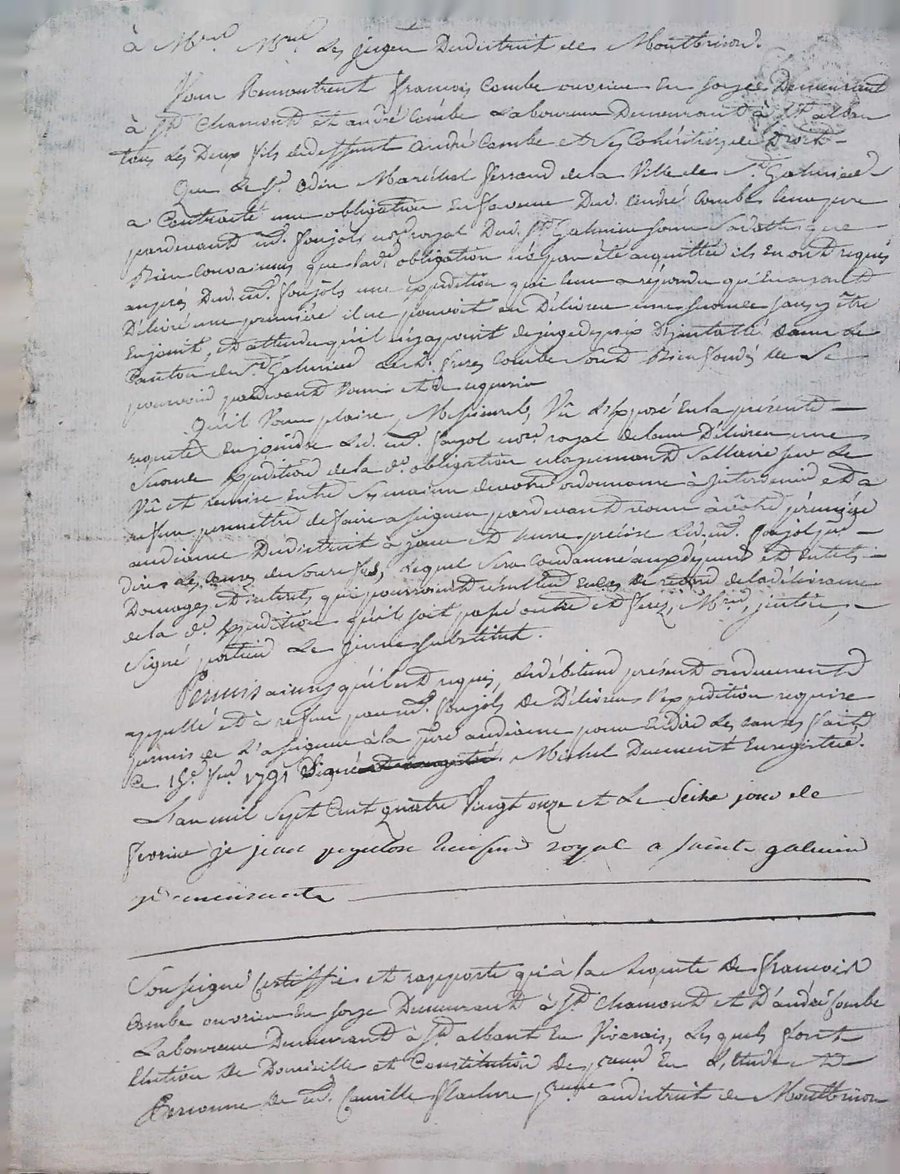 à Mrs Mrs Les juges Dudistrict de Montbrison.
Vous Remontrent francois Combe ouvrier En forges Demeurant
à St Chamond et andré Combe Laboureur Demeurant à St alban
tous les Deux fils dudeffunt andré Combe et ses Cohéritiers de Droit
Que Le Sr odin Maréchal ferrand de la Ville de St Galmier
a Contracté une obligation En faveur Dud. andré Combe leur pere
pardevant me. foujols nore royal Dud. St Galmier
Bien Convaincus que lade. obligation n'a pas été acquittée ils En ont requis
auprés Dud. me. foujols une Expédition qui leur a répondu qu'En ayant
Délivré une premiére il ne pouvoit en Délivrer une seconde sans y être
Enjoint, et attendu qu'il n'y a point de juge de paix Dejanstallé dans Le
Canton de St Galmier Lesd. freres Combe sont Bien fondés de Se
pourvoir pardevant Vous et de requerir
Qu'il Vous plaise, Messieurs, Vû L'Exposé En la présente
requête Enjoindre Lud. me. foujol nore royal de leur Délivrer une
Seconde Expédition de la de. obligation en payement Sallaire sur Le
Vû et remise Entre Ses mains de votre ordonnance à Intervenir et a
refus permettre de faire assigner pardevant vous à votre premiére
audiance Dudistrict à jour et heure précise Led. me. foujol pour
dire Les causes de son refus, lequel Sera Condamné aux dépens et En tels
Domages, Interets qui pourroient résulter En cas de retard de la délivrance
de la de. Expédition qu'il soit passé outre et ferez, Mrs, justice,
Signé portier Le jeune substitut.
Permis ainsy qu'il est requis, ledébiteur présent ou duement
appellé et à refus par me. foujols De Délivrer l'Expédition requise
permis de L'assigner à la pre audiance pour En dire Les causes fait
Ce 15e. fer. 1791 Signé Michel Duement Enregistrée.
L'an mil Sept Cent quatre Vingt onze et Le Seize jour de
fevrier je jean huissier royal a sainte galmier
Soussigné Certiffie et rapporte qu'à la Requête De francois
Combe ouvrier En forge Demeurant à St Chamond et D'andré Combe
Laboureur Demeurant à St albant En Vivarais, Lesquels font
Election De Domicille et Constitution De, En L'Etude et
Personne De me. Camille audistrict de Montbrison